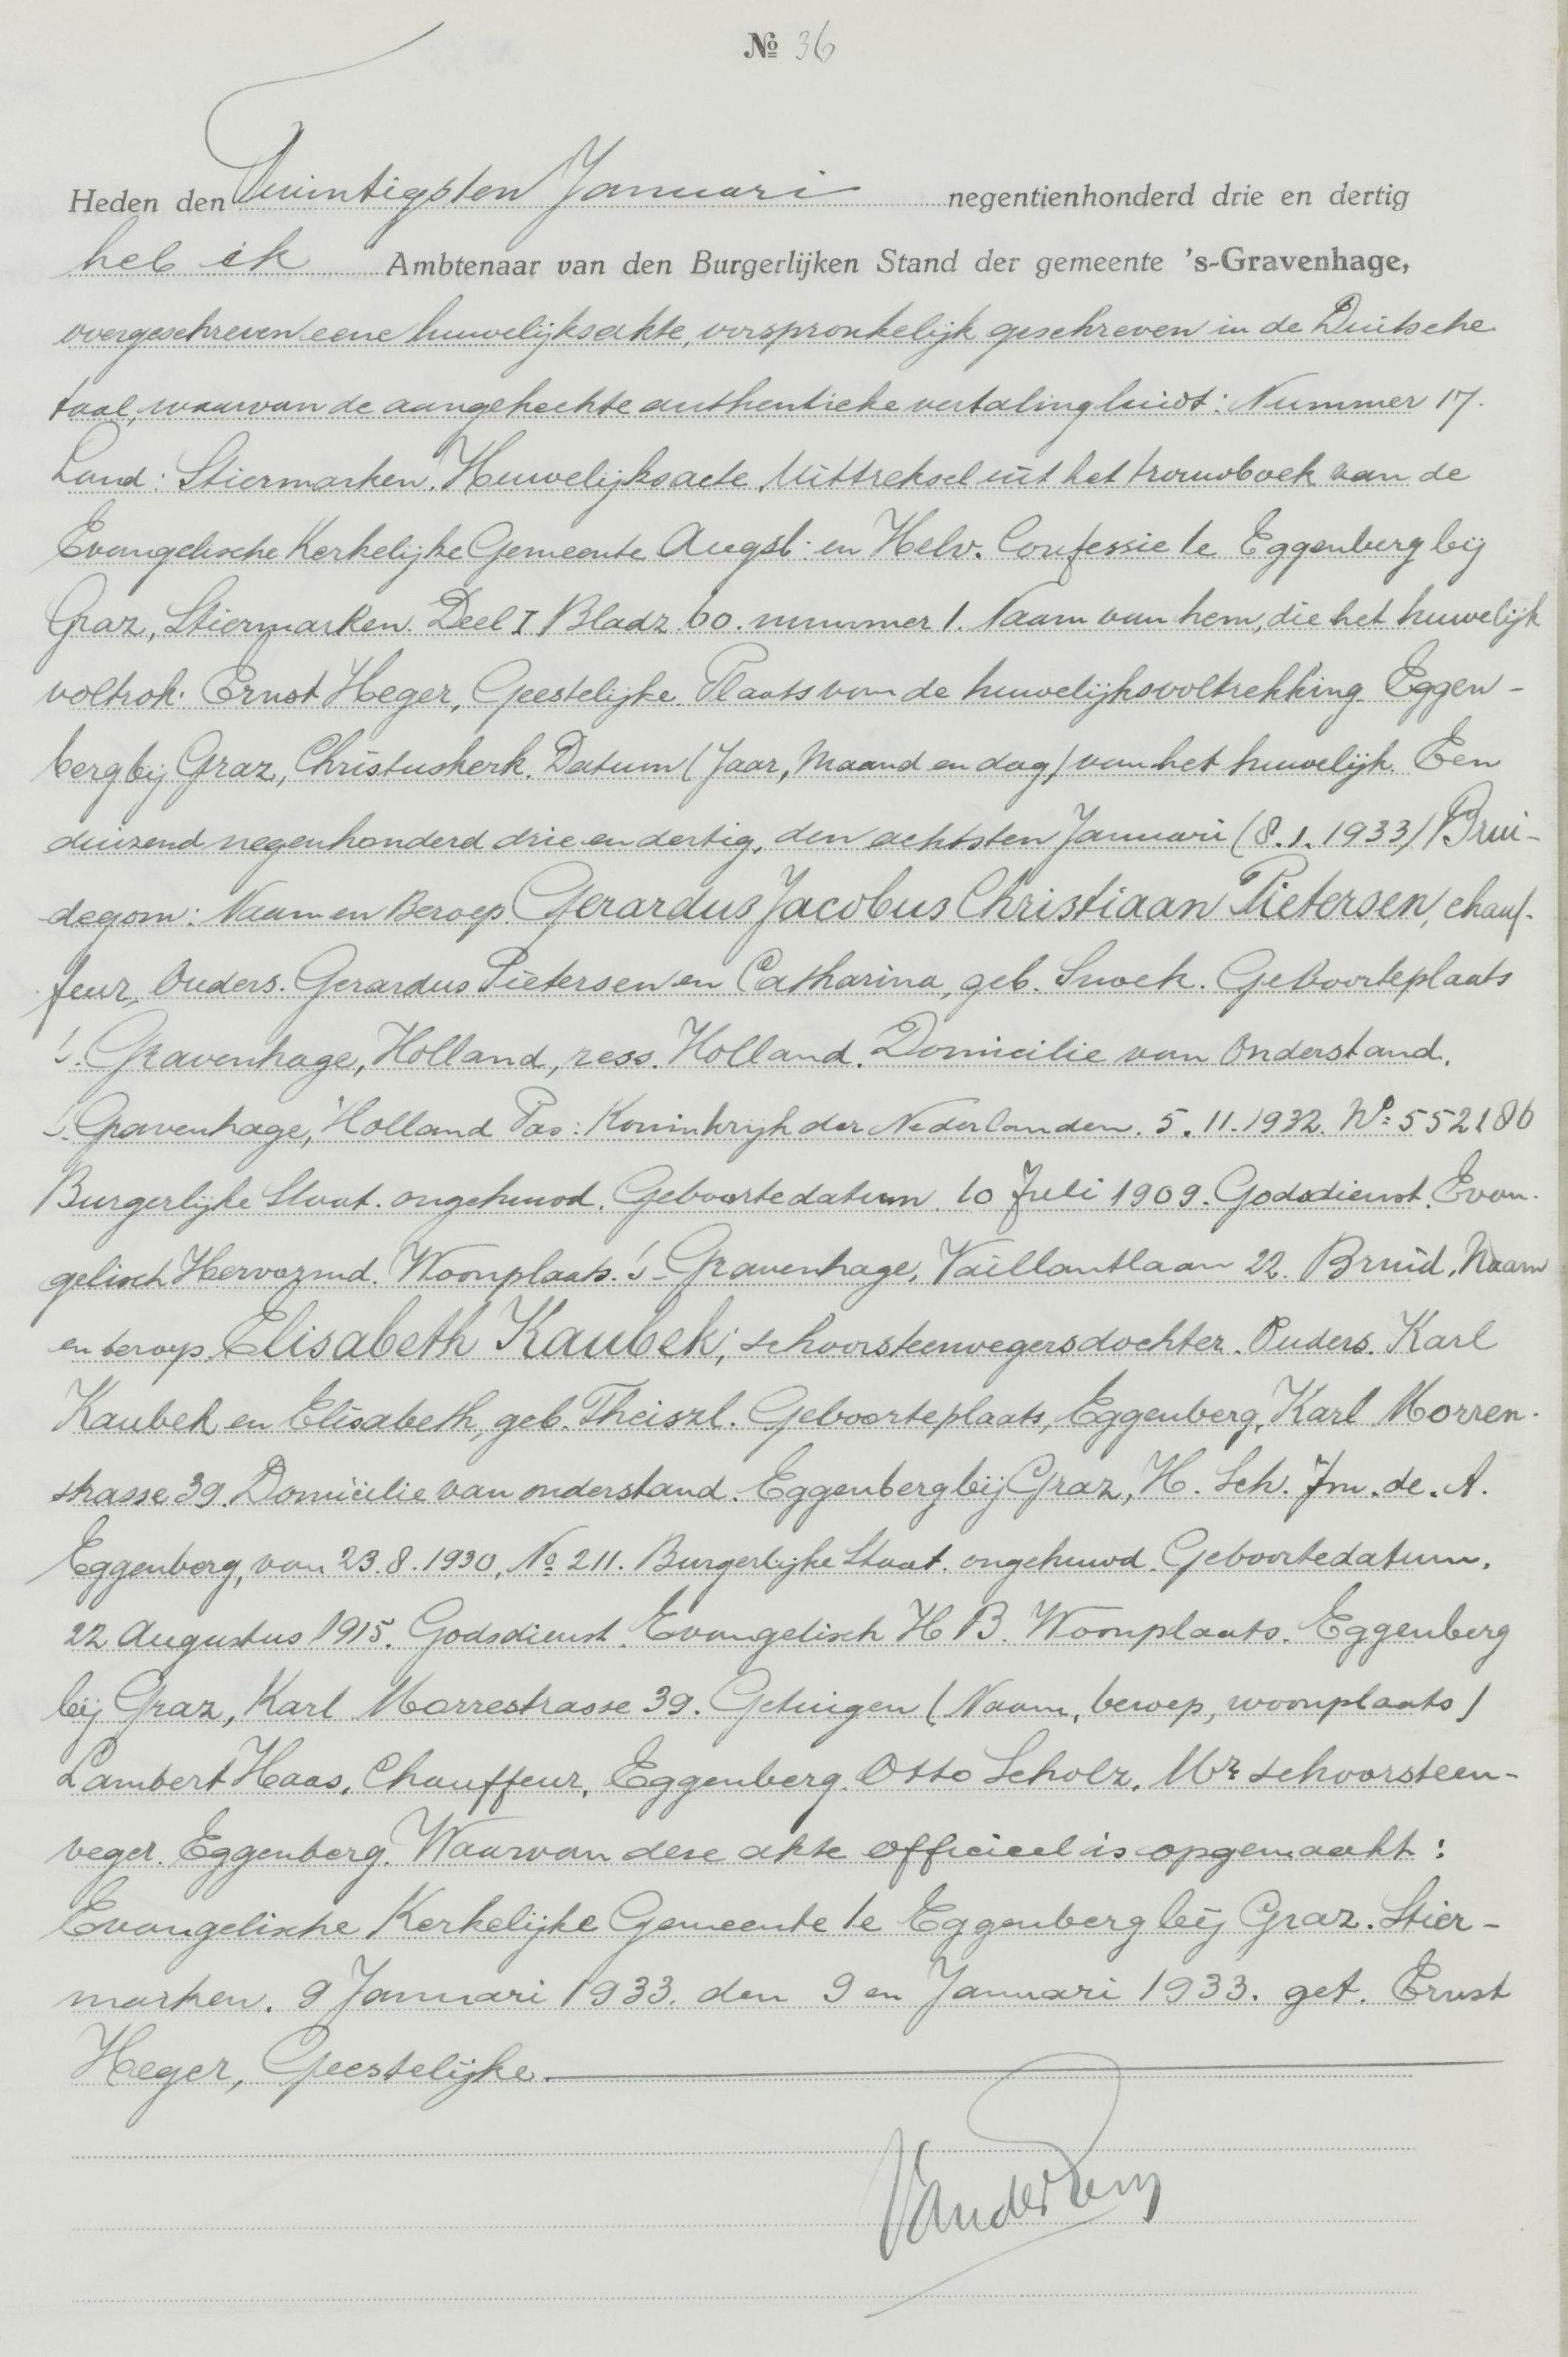 № 36
Heden den Twintigsten Januari negentienhonderd drie en dertig
heb ik Ambtenaar van den Burgerlijken Stand der gemeente 's-Gravenhage,
overgeschreven eene huwelijksakte, oorspronkelijk geschreven in de Duitsche
taal, waarvan de aangehechte authentieke vertaling luidt: Nummer 17.
Land: Stiermarken. Huwelijksacte. Uittreksel uit het trouwboek van de
Evangelische Kerkelijke Gemeente Augsb: en Helv. Confessie te Eggenburg bij
Graz, Stiermarken. Deel I Bladz. 60. nummer 1. Naam van hem, die het huwelijk
voltrok. Ernst Heger, Geestelijke. Plaats van de huwelijksvoltrekking. Eggen-
berg bij Graz, Christuskerk. Datum (Jaar, Maand en dag) van het huwelijk. Een
duizend negenhonderd drie en dertig, den achtsten Januari (8.1.1933) Brui-
degom: Naam en Beroep. Gerardus Jacobus Christiaan Pietersen, chauf-
feur, Ouders. Gerardus Pietersen en Catharina, geb. Snoek. Geboorteplaats
's-Gravenhage, Holland, ress. Holland. Domicilie van Onderstand.
's-Gravenhage, Holland Pas: Koninkrijk der Nederlanden. 5.11.1932. No: 552186
Burgerlijke Staat. ongehuwd. Geboortedatum. 10 Juli 1909. Godsdienst. Evan-
gelisch Hervormd. Woonplaats. 's-Gravenhage, Vaillantlaan 22. Bruid. Naam
en beroep. Elisabeth Kaubek; schoorsteenvegersdochter. Ouders. Karl
Kaubek en Elisabeth, geb. Theiszl. Geboorteplaats, Eggenberg, Karl Morren-
strasse 39. Domicilie van onderstand. Eggenberg bij Graz, H. Sch. Jm. de. A.
Eggenberg, van 23.8.1930, No 211. Burgerlijke Staat. ongehuwd. Geboortedatum.
22 Augustus 1915. Godsdienst. Evangelisch H B. Woonplaats. Eggenberg
bij Graz, Karl Morrestrasse 39. Getuigen (Naam, beroep, woonplaats)
Lambert Haas, Chauffeur, Eggenberg. Otto Scholz. Mr schoorsteen-
veger. Eggenberg. Waarvan deze akte officieel is opgemaakt:
Evangelische Kerkelijke Gemeente te Eggenberg bij Graz. Stier-
marken. 9 Januari 1933. den 9en Januari 1933. get. Ernst
Heger, Geestelijke.